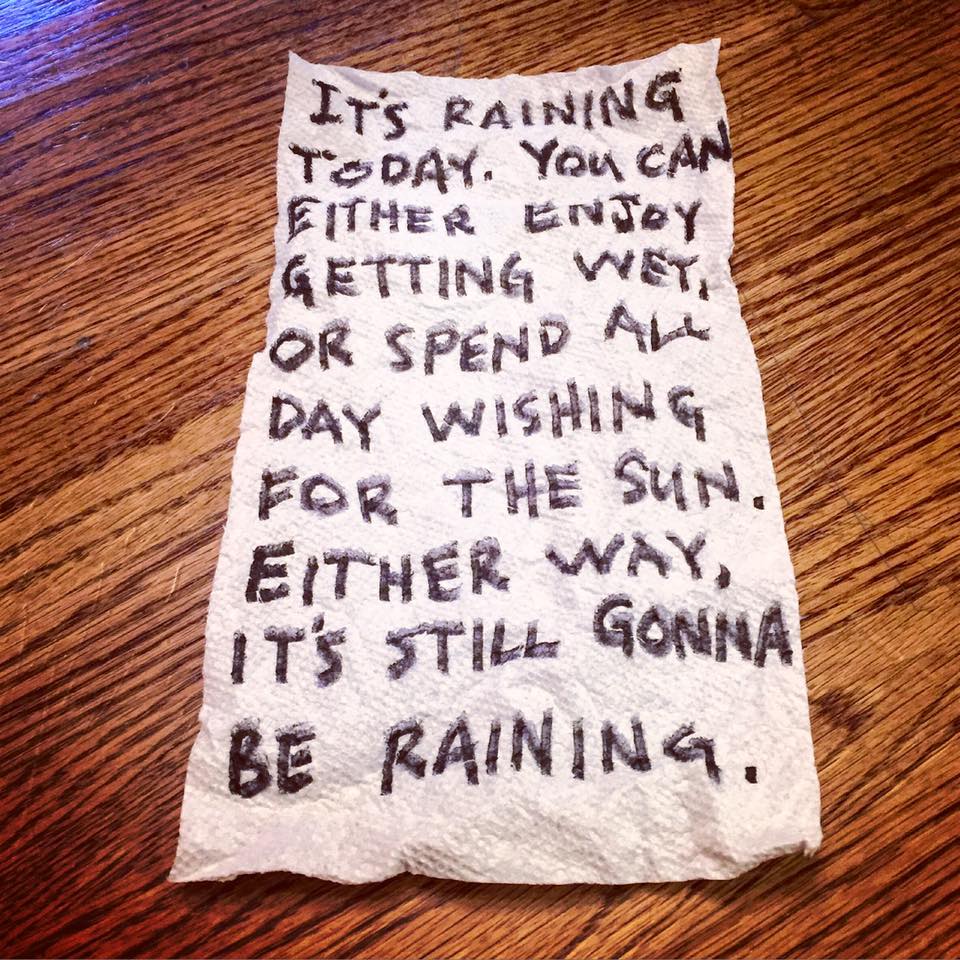 IT'S RAINING
TODAY. YOU CAN
EITHER ENJOY
GETTING WET,
OR SPEND ALL
DAY WISHING
FOR THE SUN.
EITHER WAY,
IT'S STILL GONNA
BE RAINING.